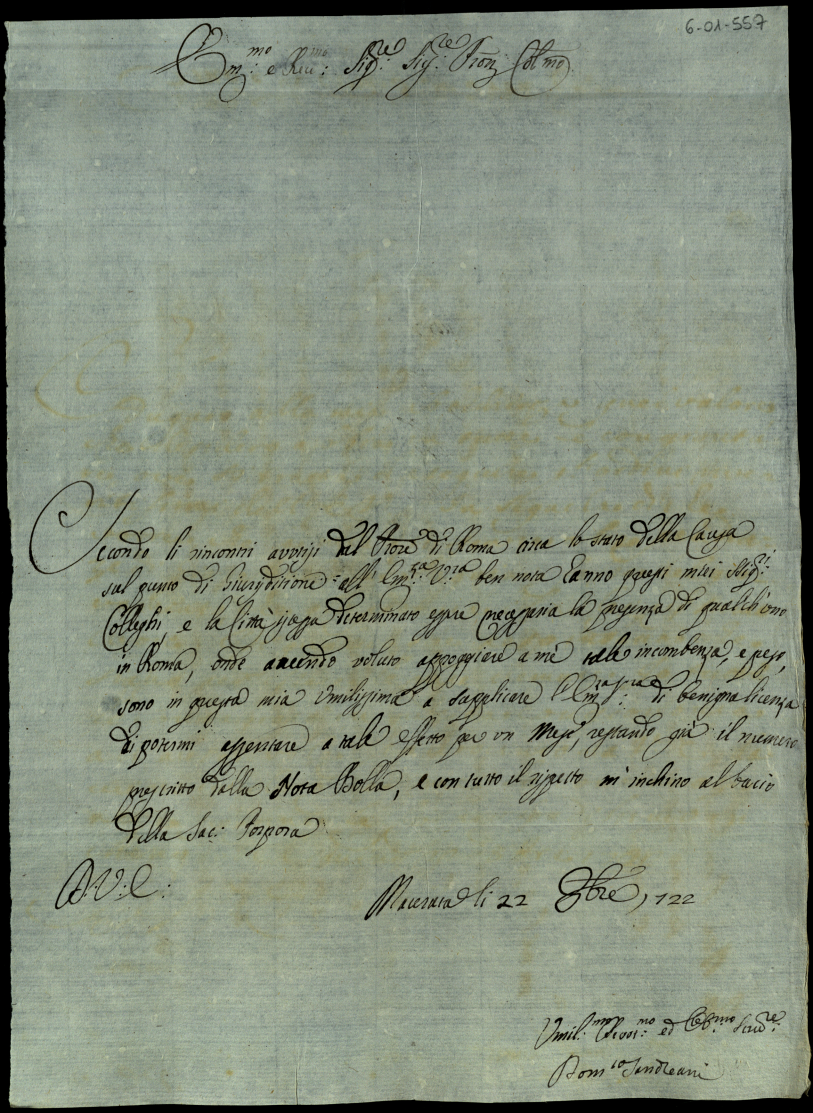 6-01-557
Em:mo e Rev:mo Sig:re Sig:re Pron Col:mo
Secondo li rincontri avvisi dal Pron̄e di Roma circa lo stato della Causa
sul punto di Giurisditione all' Em:za V:ra ben nota anno questi miei Sig:ri
Colleghi, e la Città istessa determinato essere necessaria la presenza di qualch'uno
in Roma, onde avendo voluto appoggiare a mè tale incombenza, e peso,
sono in questa mia Umilissima a supplicare l'Em:za V:ra di benigna licenza
di potermi assentare a tale effetto per un Mese, restando già il numero
prescritto dalla Nota Bolla, e con tutto il rispetto m'inchino al bacio
della Sac: Porpora
D: V: E:
Macerata li 22 9bre, 722
Umil:mo Devot:mo ed Obb:mo Serv:re
Dom:co